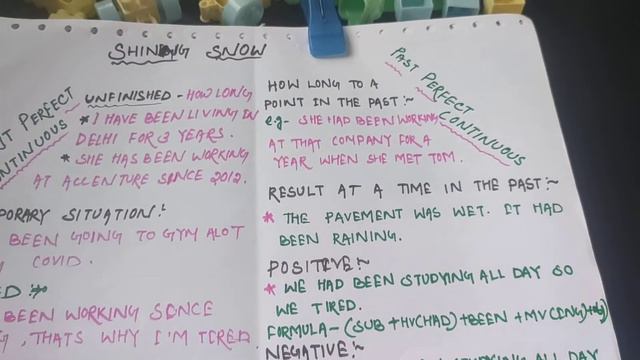 SHINING SNOW
T PERFECT
ONTINUOUS
UNFINISHED - HOW LONG
* I HAVE BEEN LIVING IN
DELHI FOR 3 YEARS.
* SHE HAS BEEN WORKING
AT ACCENTURE SINCE 2012.
PORARY SITUATION:~
BEEN GOING TO GYM ALOT
COVID.
ED :~
BEEN WORKING SINCE
, THATS WHY I'M TIRED.
PAST PERFECT
CONTINUOUS
HOW LONG TO A
POINT IN THE PAST :~
e.g- SHE HAD BEEN WORKING
AT THAT COMPANY FOR A
YEAR WHEN SHE MET TOM.
RESULT AT A TIME IN THE PAST:~
* THE PAVEMENT WAS WET. IT HAD
BEEN RAINING.
POSITIVE:~
* WE HAD BEEN STUDYING ALL DAY SO
WE TIRED.
FORMULA - (SUB + HV(HAD) + BEEN + MV(ING) +
NEGATIVE:~
ALL DAY